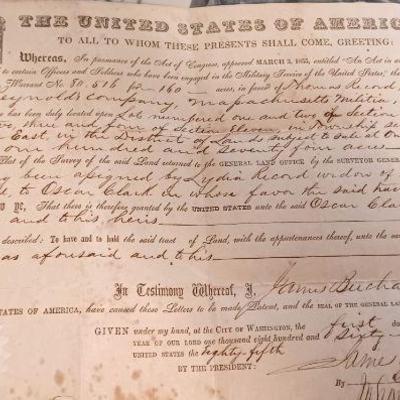 THE UNITED STATES OF AMERIC
TO ALL TO WHOM THESE PRESENTS SHALL COME, GREETING:
Whereas, In pursuance of the Act of Congress, approved MARCH 3, 1855, entitled "An Act in a
to certain Officers and Soldiers who have been engaged in the Military Service of the United States," the
Warrant No 80,516 for 160 acres, in favor of Thomas Record
Reynold's company, Massachusetts Militia,
has been duly located upon Lot numbered one and two of Section
and four of Section Eleven in Township
East, in the District of Lands subject to Sale at
one hundred and seventy four acres
of the Survey of the said Land returned to the GENERAL LAND OFFICE by the SURVEYOR GENER
been assigned by Lydia Record widow of
to Oscar Clark in whose favor the said
YE, That there is therefore granted by the UNITED STATES unto the said Oscar Cla
and to his heirs
described: To have and to hold the said tract of Land, with the appurtenances thereof, unto the sai
as aforesaid and to his
In Testimony Whereof, I, James Bucha
STATES OF AMERICA, have caused these Letters to be made Patent, and the SEAL OF THE GENERAL LAN
GIVEN under my hand, at the CITY OF WASHINGTON, the first d
YEAR OF OUR LORD one thousand eight hundred and Sixty
UNITED STATES the Eighty fifth
BY THE PRESIDENT: James
By